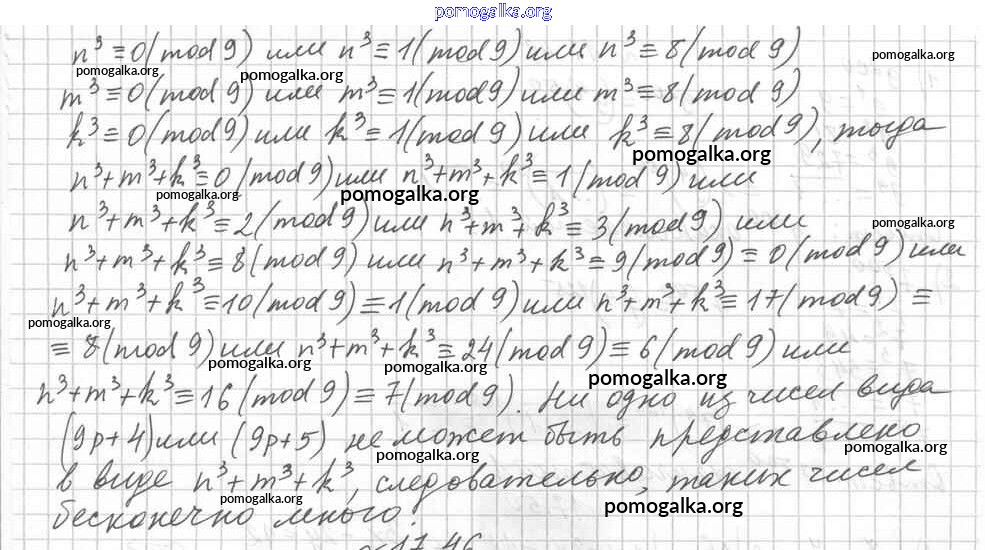 pomogalka.org
n³ ≡ 0(mod 9) или n³ ≡ 1(mod 9) или n³ ≡ 8(mod 9)
pomogalka.org pomogalka.org pomogalka.org
m³ ≡ 0(mod 9) или m³ ≡ 1(mod 9) или m³ ≡ 8(mod 9)
k³ ≡ 0(mod 9) или k³ ≡ 1(mod 9) или k³ ≡ 8(mod 9), тогда
pomogalka.org
n³+m³+k³ ≡ 0(mod 9) или n³+m³+k³ ≡ 1(mod 9) или
pomogalka.org pomogalka.org
n³+m³+k³ ≡ 2(mod 9) или n³+m³+k³ ≡ 3(mod 9) или
pomogalka.org
n³+m³+k³ ≡ 8(mod 9) или n³+m³+k³ ≡ 9(mod 9) ≡ 0(mod 9) или
n³+m³+k³ ≡ 10(mod 9) ≡ 1(mod 9) или n³+m³+k³ ≡ 17(mod 9) ≡
pomogalka.org
≡ 8(mod 9) или n³+m³+k³ ≡ 24(mod 9) ≡ 6(mod 9) или
pomogalka.org pomogalka.org
n³+m³+k³ ≡ 16(mod 9) ≡ 7(mod 9). Ни одно из чисел вида
(9p+4) или (9p+5) не может быть представлено
pomogalka.org pomogalka.org
в виде n³+m³+k³, следовательно, таких чисел
pomogalka.org pomogalka.org
бесконечно много.
17.46